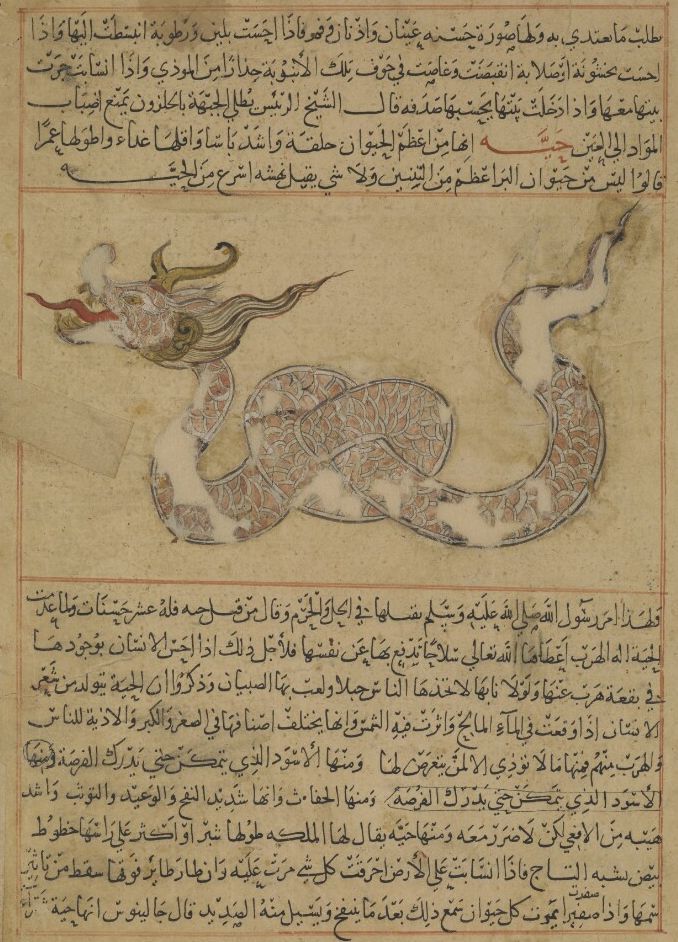 يطلب ما يغتدي به ولها صورة حسنة عينان واذنان وفم فاذا احست بلين ورطوبة انبسطت اليها واذا
احست بخشونة او صلابة انقبضت وغاصت في جوف تلك الانبوبة حذارا من الموذي واذا انسابت جرت
بيتها معها واذا دخلت بيتها يحسبها صدفه قال الشيخ الرئيس يطلي الجبهة بالحلزون يمنع انصباب
المواد الي العين حية انها من اعظم الحيوان خلقة واشد باسا واقلها غذاء واطولها عمرا
قالوا ليس من حيوان البر اعظم من التنين ولا شي يقبل نهشه اسرع من الحيه
ولهذا امر رسول الله صلي الله عليه وسلم بقتلها في الحل والحرم وقال من قتل حيه فله عشر حسنات ولما عدمت
الحية اله الهرب اعطاها الله تعالي سلاحا تدفع بها عن نفسها فلاجل ذلك اذا احس الانسان بوجودها
في بقعة هرب عنها ولولا نابها لاتخذها الناس حبلا ولعب بها الصبيان وذكروا ان الحية يتولد من شعر
الانسان اذا وقعت في الماء المالح واثرت فيه الشمس وانها يختلف اصنافها في الصغر والكبر والاذية للناس
والهرب منهم فمنها ما لا توذي الا لمن يتعرض لها ومنها الاسود الذي يتمكن حتي يدرك الفرصة ومنها
الاسود الذي يتمكن حتي يدرك الفرصة ومنها الحفاث وانها شديد النفخ والوعيد والتوثب واشد
هيبه من الافعي لكن لا ضرر معه ومنها حيه يقال لها الملكه طولها شبر او اكثر علي راسها خطوط
بيض يشبه التاج فاذا انسابت علي الارض احرقت كل شي مرت عليه وان طار طاير فوقها سقط من تاثير
سمها واذا صفرت صفيرا يموت كل حيوان سمع ذلك بعد ما ينتفخ ويسيل منه الصديد قال جالينوس انها حية